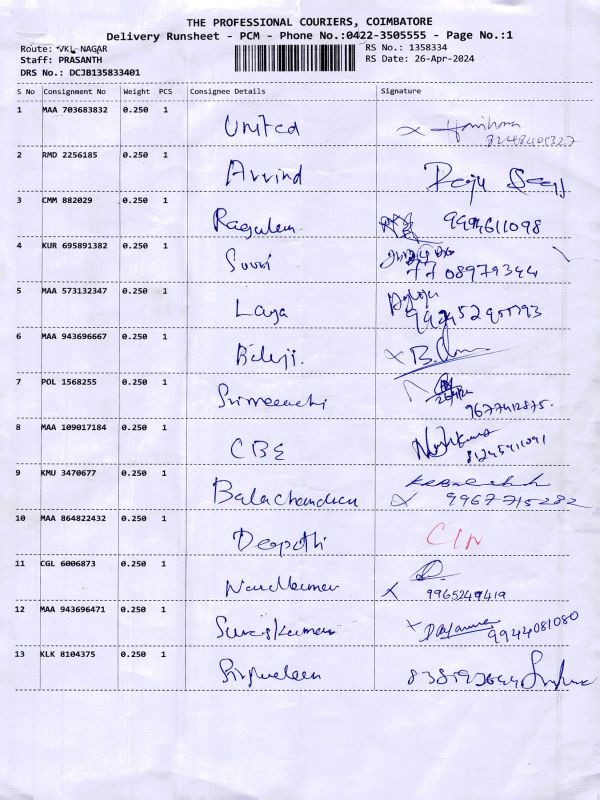 THE PROFESSIONAL COURIERS, COIMBATORE
Delivery Runsheet - PCM - Phone No.:0422-3505555 - Page No.:1
Route: VKL NAGAR RS No.: 1358334
Staff: PRASANTH RS Date: 26-Apr-2024
DRS No.: DCJB135833401
S No Consignment No Weight PCS Consignee Details Signature
1 MAA 703683832 0.250 1 United
2 RMD 2256185 0.250 1 Arvind
3 CMM 882029 0.250 1 9994611098
4 KUR 695891382 0.250 1 7708979344
5 MAA 573132347 0.250 1 Laya
6 MAA 943696667 0.250 1 Balaji.
7 POL 1568255 0.250 1 9677412875.
8 MAA 109017184 0.250 1 CBE
9 KMU 3470677 0.250 1 Balachandran 9967715282
10 MAA 864822432 0.250 1 Deepthi CIN
11 CGL 6006873 0.250 1 Nandkumar 9965249419
12 MAA 943696471 0.250 1 Sureshkumar 9944081080
13 KLK 8104375 0.250 1